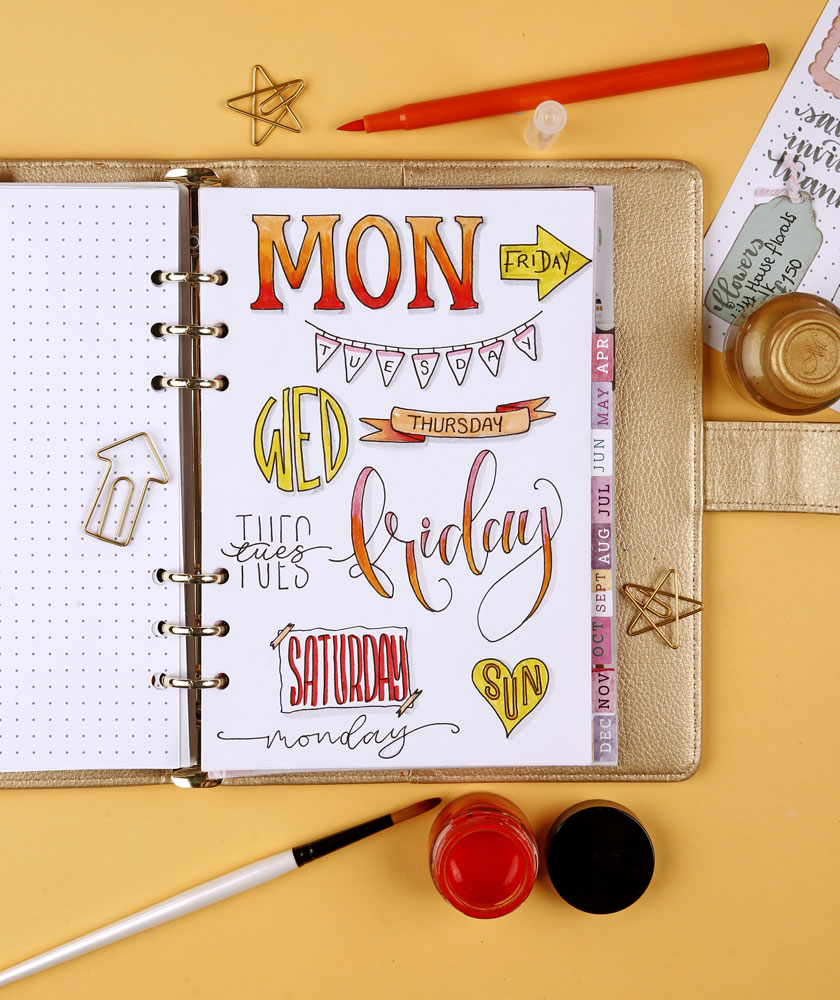 MON
FRIDAY
TUESDAY
WED
THURSDAY
TUES
tues
TUES
friday
SATURDAY
SUN
monday
APR
MAY
JUN
JUL
AUG
SEPT
OCT
NOV
DEC
flowers
House Florals
150